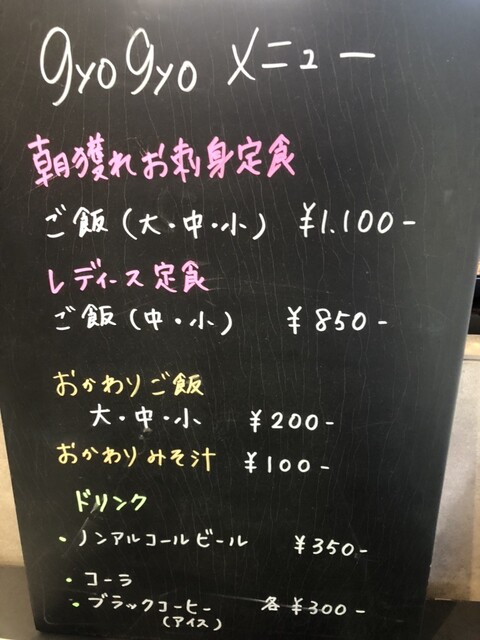 gyogyo メニュー
朝獲れお刺身定食
ご飯(大・中・小) ¥1.100-
レディース定食
ご飯(中・小) ¥850-
おかわりご飯
大・中・小 ¥200-
おかわりみそ汁 ¥100-
ドリンク
・ノンアルコールビール ¥350-
・コーラ
・ブラックコーヒー 各¥300-
(アイス)